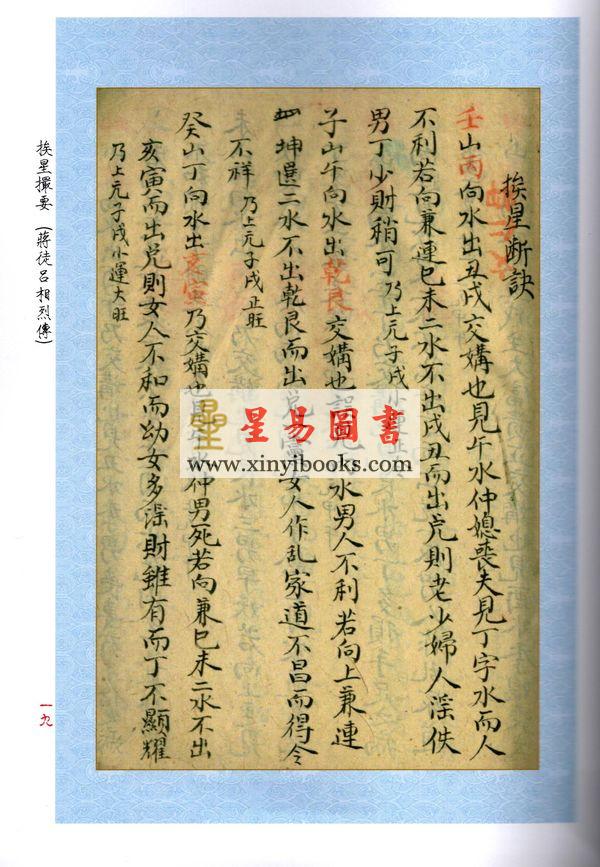 挨星断訣
壬山丙向水出丑戌交媾也見午水仲媳喪夫見丁字水而人
不利若向兼連巳未二水不出戌丑而出兑則老少婦人淫佚
男丁少財稍可乃上元子戌小運
子山午向水出乾艮交媾也 水男人不利若向上兼連
坤選二水不出乾艮而出 女人作乱家道不昌而得令
不祥乃上元子戌正旺
癸山丁向水出亥寅乃交媾也 水仲男死若向兼巳未二水不出
亥寅而出兑則女人不和而幼女多淫財雖有而丁不顯耀
乃上元子戌小運大旺
挨星撮要（蔣徒呂相烈傳）
一九
星易圖書
www.xinyibooks.com